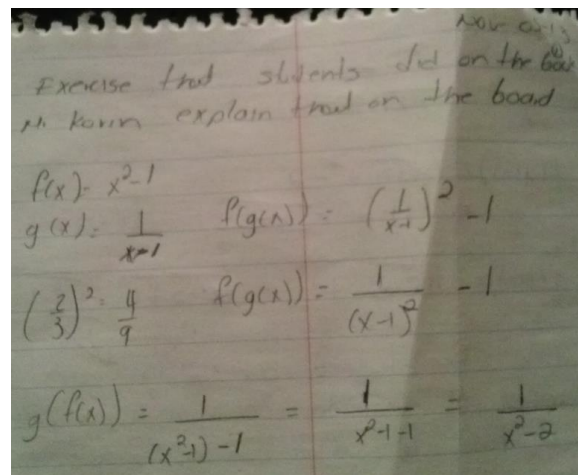 Exercise that students did on the
Mr. Korin explain that on the board
f(x) = x²-1
g(x) = 1/(x-1)   f(g(x)) = (1/(x-1))² - 1
(2/3)² = 4/9   f(g(x)) = 1/(x-1)² - 1
g(f(x)) = 1/((x²-1)-1) = 1/(x²-1-1) = 1/(x²-2)